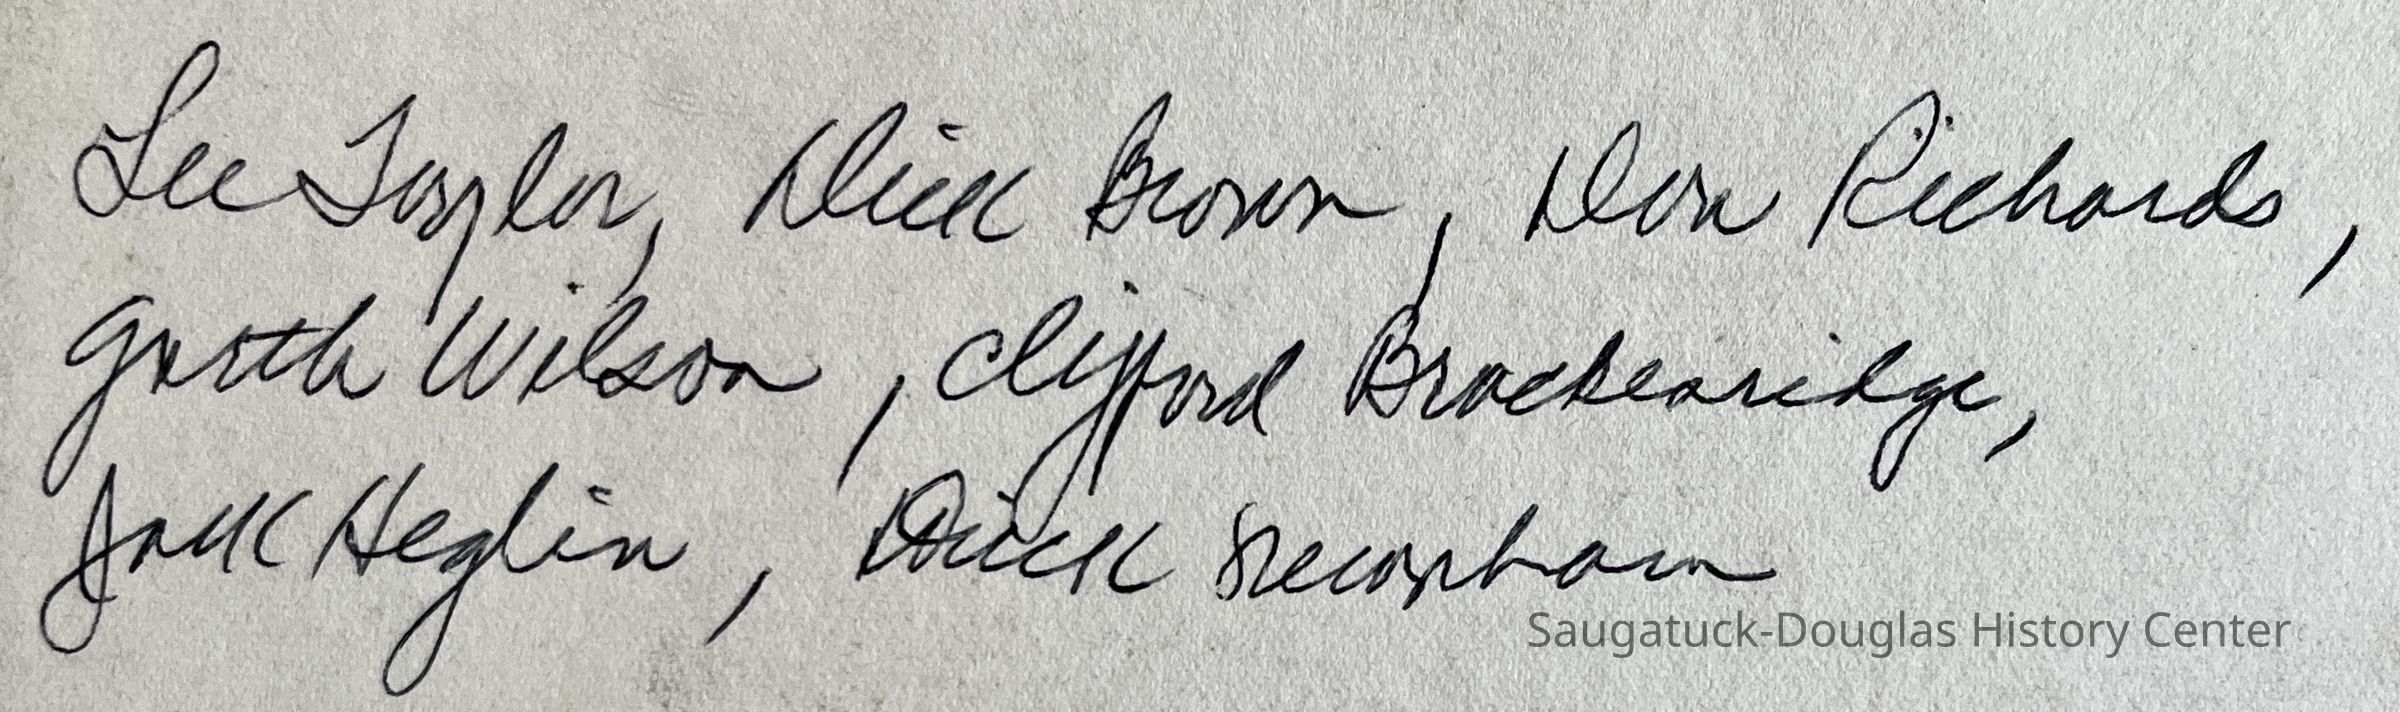 Lee Taylor, Dick Brown, Don Richards,
Garth Wilson, Clifford Brackenridge,
Jack Heglin, Dick
Saugatuck-Douglas History Center